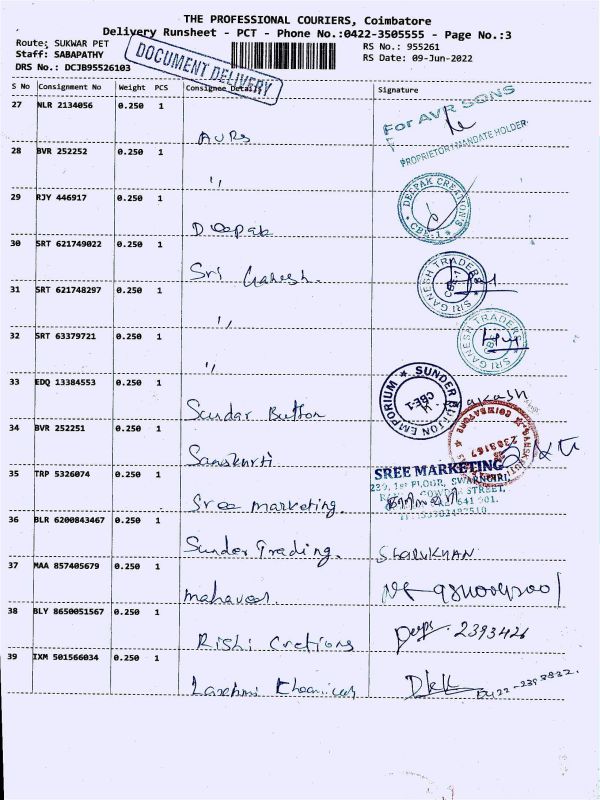 THE PROFESSIONAL COURIERS, Coimbatore
Delivery Runsheet - PCT - Phone No.:0422-3505555 - Page No.:3
Route: SUKWAR PET
RS No.: 955261
Staff: SABAPATHY
RS Date: 09-Jun-2022
DRS No.: DCJB95526103
DOCUMENT DELIVERY
S No Consignment No Weight PCS Consignee Details Signature
27 NLR 2134056 0.250 1
For AVR SONS
PROPRIETOR / MANDATE HOLDER
AVRS
28 BVR 252252 0.250 1
"
29 RJY 446917 0.250 1
DEEPAK CREATIONS
CBE-1
Deepak
30 SRT 621749022 0.250 1
Sri Ganesh.
SRI GANESH TRADERS
CBE-1
31 SRT 621748297 0.250 1
"
32 SRT 63379721 0.250 1
SRI GANESH TRADERS
"
33 EDQ 13384553 0.250 1
SUNDER BUTTON EMPORIUM
CBE-1
Sundar Button
34 BVR 252251 0.250 1
COIMBATORE
Sanskruti
35 TRP 5326074 0.250 1
SREE MARKETING
239, 1st FLOOR, SWARNGIRI
STREET,
641 001.
Sree marketing.
36 BLR 6200843467 0.250 1
Sunder Trading.
37 MAA 857405679 0.250 1
mahaveer.
38 BLY 8650051567 0.250 1
Rishi Cretions
2393426
39 IXM 501566034 0.250 1
Laxshmi Chemicals